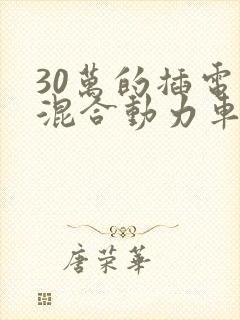 30萬的插電
混合動力車
唐荣華